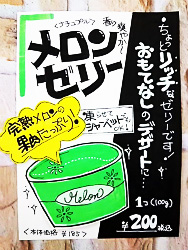 ＜ナチュラル＞
香り爽やか〜
メロンゼリー
ちょっとリッチなゼリーです！
おもてなしのデザートに…
完熟メロンの
果肉たっぷり！
凍らせて
シャーベットも
OK！
Melon
1コ(100g)
¥200税込
＜本体価格 ¥185＞